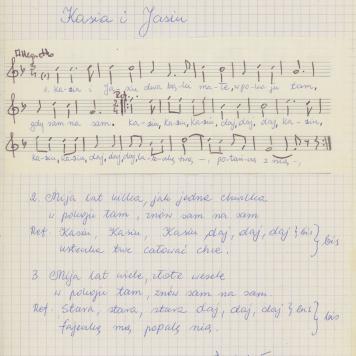 Kasia i Jasiu
Allegretto
1. Kasiu i Jasiu dwa bąki małe, w pokoju tam,
gdy sam na sam. Ref. Kasiu, Kasiu, Kasiu, daj, daj, daj, Kasiu,
Kasiu, Kasiu, daj, daj, daj, twą –, z nią –,
2. Mija lat kilka, jak jedna chwilka
w pokoju tam, znów sam na sam
Ref. Kasiu, Kasiu, Kasiu daj, daj, daj } bis } bis
usteczka twe całować chcę.
3. Mija lat wiele, złote wesele
w pokoju tam, znów sam na sam.
Ref. Stara, stara, stara daj, daj, daj } bis } bis
fajeczkę mą popalę nią.